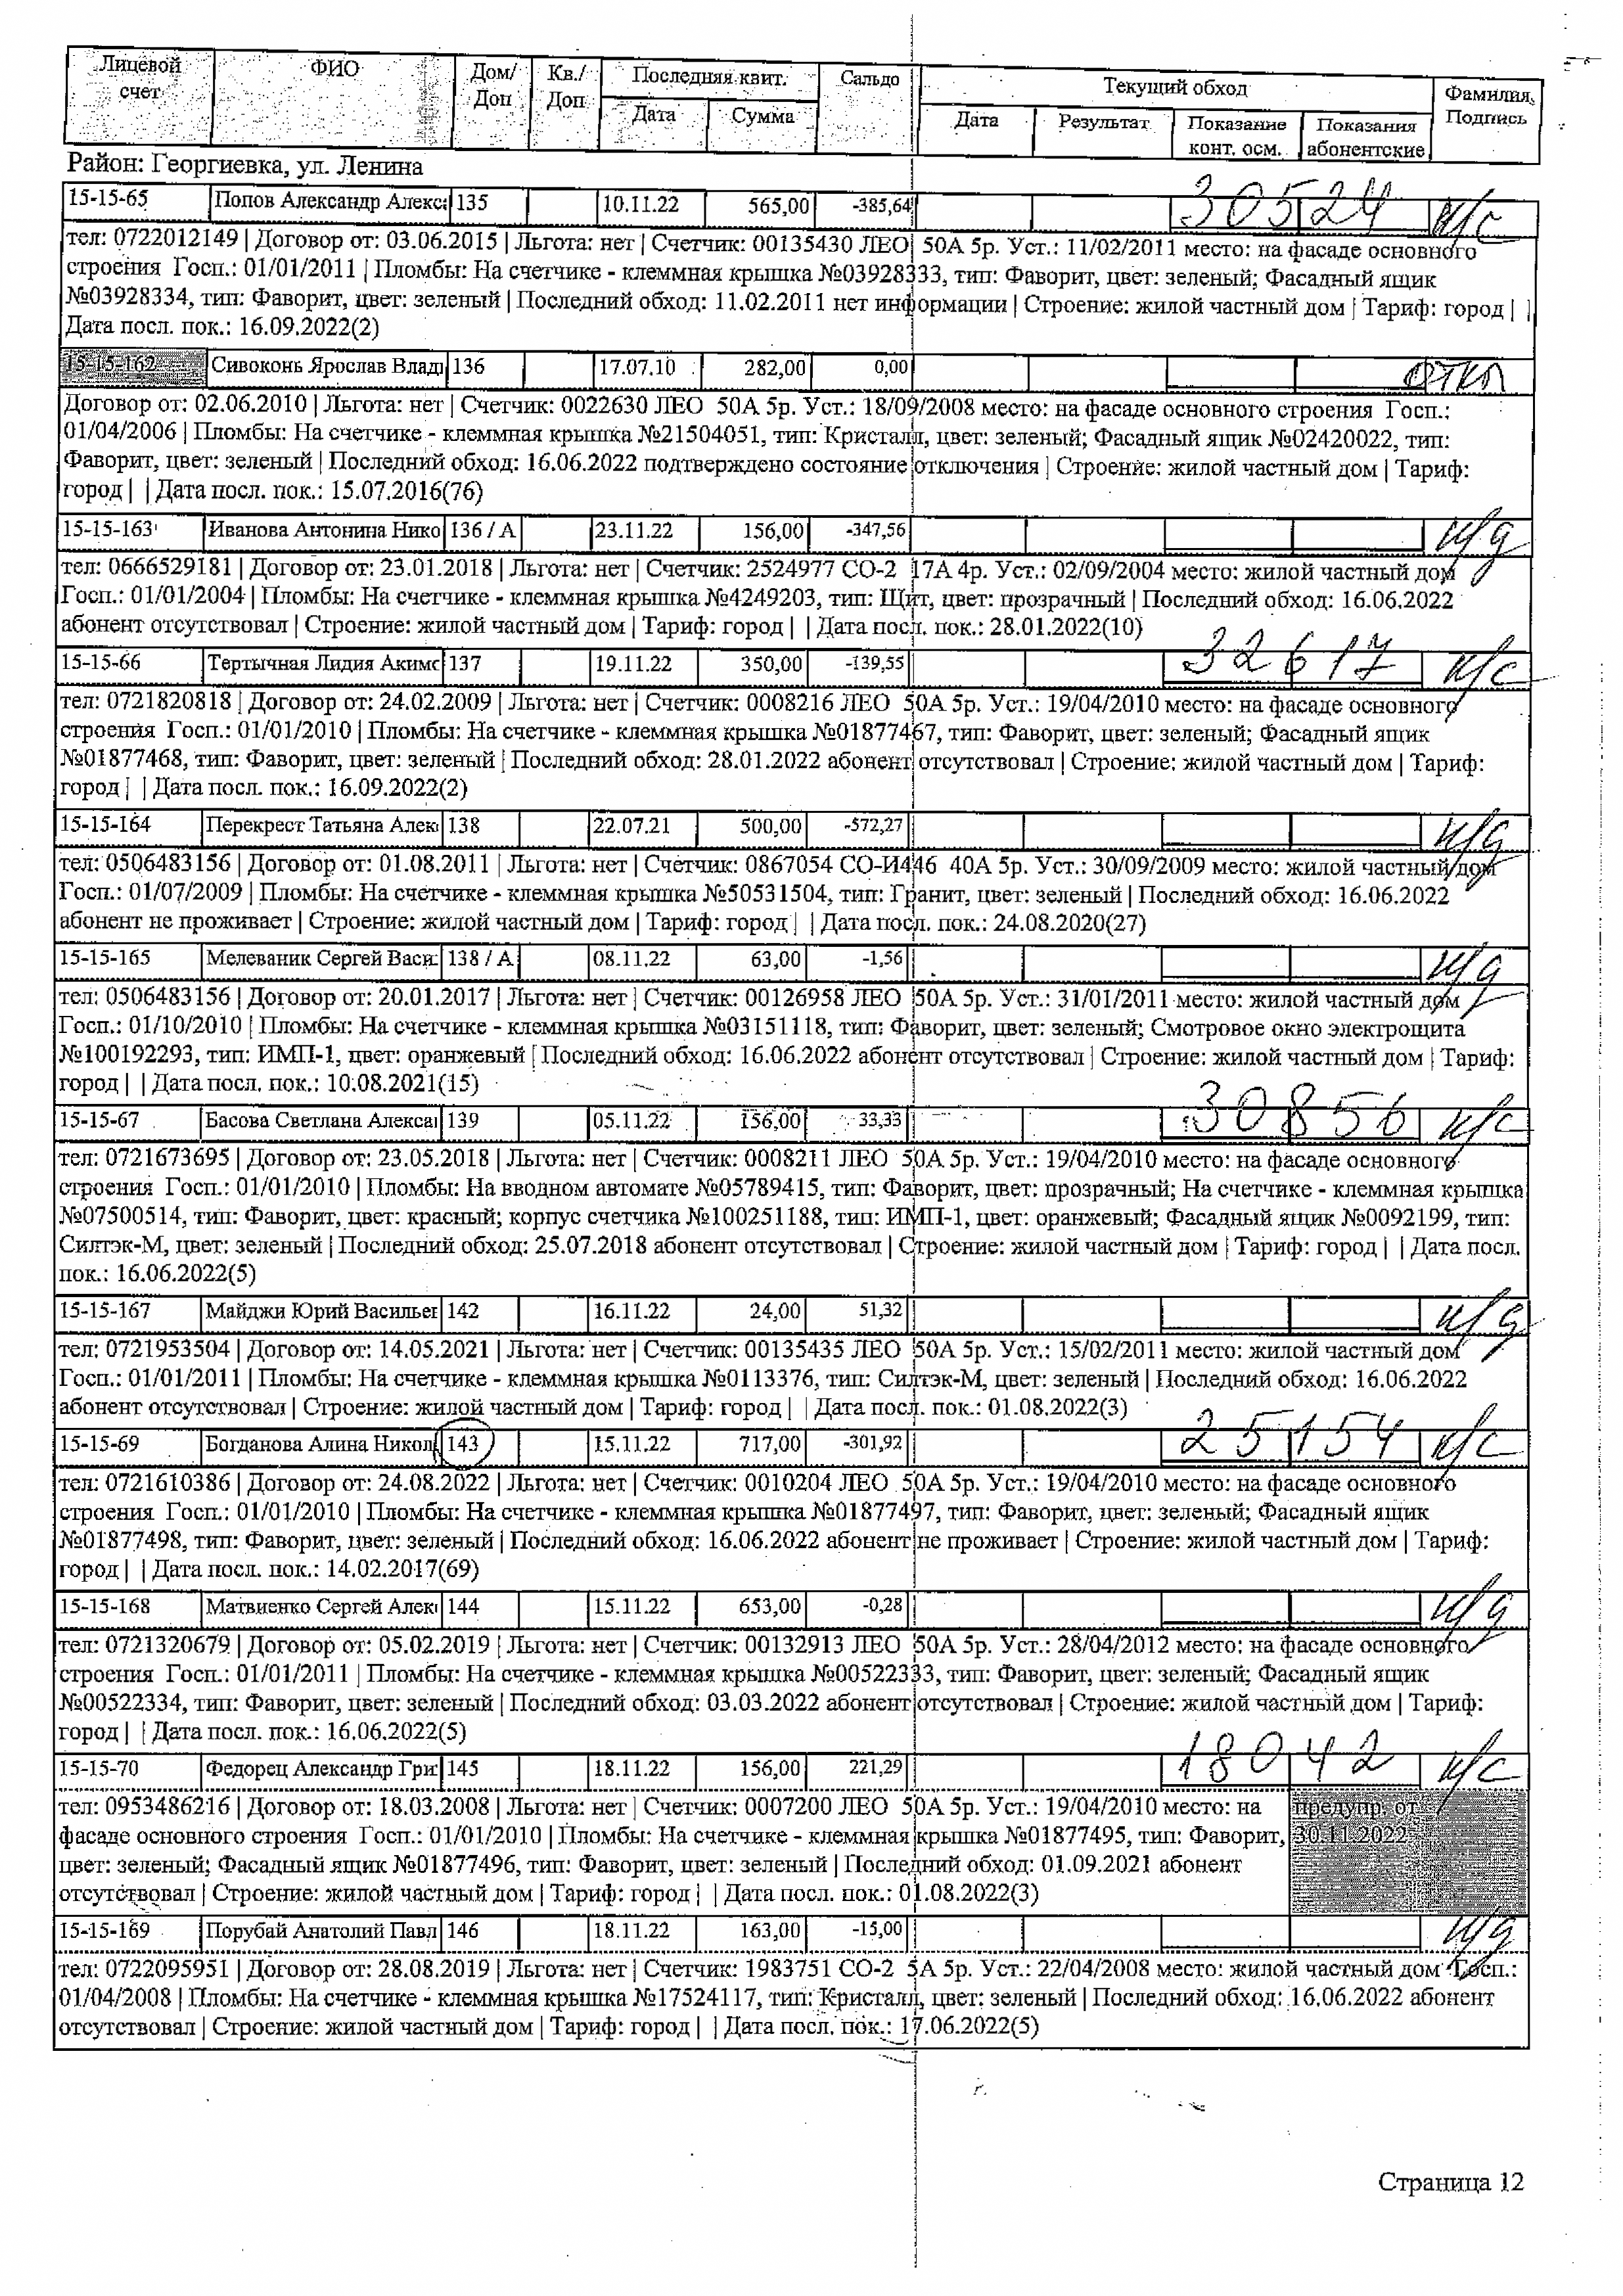 Лицевой счет ФИО Дом/Доп Кв./Доп Последняя квит. Сальдо Текущий обход Фамилия, Подпись
Дата Сумма Дата Результат Показание конт. осм. Показания абонентские
Район: Георгиевка, ул. Ленина
15-15-65 Попов Александр Алекс 135 10.11.22 565,00 -385,64 30524 к/с
тел: 0722012149 | Договор от: 03.06.2015 | Льгота: нет | Счетчик: 00135430 ЛЕО 50А 5р. Уст.: 11/02/2011 место: на фасаде основного
строения Госп.: 01/01/2011 | Пломбы: На счетчике - клеммная крышка №03928333, тип: Фаворит, цвет: зеленый; Фасадный ящик
№03928334, тип: Фаворит, цвет: зеленый | Последний обход: 11.02.2011 нет информации | Строение: жилой частный дом | Тариф: город | |
Дата посл. пок.: 16.09.2022(2)
15-15-162 Сивоконь Ярослав Влад 136 17.07.10 282,00 0,00 откл
Договор от: 02.06.2010 | Льгота: нет | Счетчик: 0022630 ЛЕО 50А 5р. Уст.: 18/09/2008 место: на фасаде основного строения Госп.:
01/04/2006 | Пломбы: На счетчике - клеммная крышка №21504051, тип: Кристалл, цвет: зеленый; Фасадный ящик №02420022, тип:
Фаворит, цвет: зеленый | Последний обход: 16.06.2022 подтверждено состояние отключения | Строение: жилой частный дом | Тариф:
город | | Дата посл. пок.: 15.07.2016(76)
15-15-163 Иванова Антонина Нико 136 / А 23.11.22 156,00 -347,56 н/д
тел: 0666529181 | Договор от: 23.01.2018 | Льгота: нет | Счетчик: 2524977 СО-2 17А 4р. Уст.: 02/09/2004 место: жилой частный дом
Госп.: 01/01/2004 | Пломбы: На счетчике - клеммная крышка №4249203, тип: Щит, цвет: прозрачный | Последний обход: 16.06.2022
абонент отсутствовал | Строение: жилой частный дом | Тариф: город | | Дата посл. пок.: 28.01.2022(10)
15-15-66 Тертычная Лидия Акимо 137 19.11.22 350,00 -139,55 32617 к/с
тел: 0721820818 | Договор от: 24.02.2009 | Льгота: нет | Счетчик: 0008216 ЛЕО 50А 5р. Уст.: 19/04/2010 место: на фасаде основного
строения Госп.: 01/01/2010 | Пломбы: На счетчике - клеммная крышка №01877467, тип: Фаворит, цвет: зеленый; Фасадный ящик
№01877468, тип: Фаворит, цвет: зеленый | Последний обход: 28.01.2022 абонент отсутствовал | Строение: жилой частный дом | Тариф:
город | | Дата посл. пок.: 16.09.2022(2)
15-15-164 Перекрест Татьяна Алек 138 22.07.21 500,00 -572,27 н/д
тел: 0506483156 | Договор от: 01.08.2011 | Льгота: нет | Счетчик: 0867054 СО-И446 40А 5р. Уст.: 30/09/2009 место: жилой частный дом
Госп.: 01/07/2009 | Пломбы: На счетчике - клеммная крышка №50531504, тип: Гранит, цвет: зеленый | Последний обход: 16.06.2022
абонент не проживает | Строение: жилой частный дом | Тариф: город | | Дата посл. пок.: 24.08.2020(27)
15-15-165 Мелеваник Сергей Васи 138 / А 08.11.22 63,00 -1,56 н/д
тел: 0506483156 | Договор от: 20.01.2017 | Льгота: нет | Счетчик: 00126958 ЛЕО 50А 5р. Уст.: 31/01/2011 место: жилой частный дом
Госп.: 01/10/2010 | Пломбы: На счетчике - клеммная крышка №03151118, тип: Фаворит, цвет: зеленый; Смотровое окно электрощита
№100192293, тип: ИМП-1, цвет: оранжевый | Последний обход: 16.06.2022 абонент отсутствовал | Строение: жилой частный дом | Тариф:
город | | Дата посл. пок.: 10.08.2021(15)
15-15-67 Басова Светлана Алекса 139 05.11.22 156,00 33,33 30856 к/с
тел: 0721673695 | Договор от: 23.05.2018 | Льгота: нет | Счетчик: 0008211 ЛЕО 50А 5р. Уст.: 19/04/2010 место: на фасаде основного
строения Госп.: 01/01/2010 | Пломбы: На вводном автомате №05789415, тип: Фаворит, цвет: прозрачный; На счетчике - клеммная крышка
№07500514, тип: Фаворит, цвет: красный; корпус счетчика №100251188, тип: ИМП-1, цвет: оранжевый; Фасадный ящик №0092199, тип:
Силтэк-М, цвет: зеленый | Последний обход: 25.07.2018 абонент отсутствовал | Строение: жилой частный дом | Тариф: город | | Дата посл.
пок.: 16.06.2022(5)
15-15-167 Майджи Юрий Васильев 142 16.11.22 24,00 51,32 н/д
тел: 0721953504 | Договор от: 14.05.2021 | Льгота: нет | Счетчик: 00135435 ЛЕО 50А 5р. Уст.: 15/02/2011 место: жилой частный дом
Госп.: 01/01/2011 | Пломбы: На счетчике - клеммная крышка №0113376, тип: Силтэк-М, цвет: зеленый | Последний обход: 16.06.2022
абонент отсутствовал | Строение: жилой частный дом | Тариф: город | | Дата посл. пок.: 01.08.2022(3)
15-15-69 Богданова Алина Никол 143 15.11.22 717,00 -301,92 25154 к/с
тел: 0721610386 | Договор от: 24.08.2022 | Льгота: нет | Счетчик: 0010204 ЛЕО 50А 5р. Уст.: 19/04/2010 место: на фасаде основного
строения Госп.: 01/01/2010 | Пломбы: На счетчике - клеммная крышка №01877497, тип: Фаворит, цвет: зеленый; Фасадный ящик
№01877498, тип: Фаворит, цвет: зеленый | Последний обход: 16.06.2022 абонент не проживает | Строение: жилой частный дом | Тариф:
город | | Дата посл. пок.: 14.02.2017(69)
15-15-168 Матвиенко Сергей Алек 144 15.11.22 653,00 -0,28 н/д
тел: 0721320679 | Договор от: 05.02.2019 | Льгота: нет | Счетчик: 00132913 ЛЕО 50А 5р. Уст.: 28/04/2012 место: на фасаде основного
строения Госп.: 01/01/2011 | Пломбы: На счетчике - клеммная крышка №00522333, тип: Фаворит, цвет: зеленый; Фасадный ящик
№00522334, тип: Фаворит, цвет: зеленый | Последний обход: 03.03.2022 абонент отсутствовал | Строение: жилой частный дом | Тариф:
город | | Дата посл. пок.: 16.06.2022(5)
15-15-70 Федорец Александр Гри 145 18.11.22 156,00 221,29 18042 к/с
тел: 0953486216 | Договор от: 18.03.2008 | Льгота: нет | Счетчик: 0007200 ЛЕО 50А 5р. Уст.: 19/04/2010 место: на предупр. от
фасаде основного строения Госп.: 01/01/2010 | Пломбы: На счетчике - клеммная крышка №01877495, тип: Фаворит, 30.11.2022
цвет: зеленый; Фасадный ящик №01877496, тип: Фаворит, цвет: зеленый | Последний обход: 01.09.2021 абонент
отсутствовал | Строение: жилой частный дом | Тариф: город | | Дата посл. пок.: 01.08.2022(3)
15-15-169 Порубай Анатолий Павл 146 18.11.22 163,00 -15,00 н/д
тел: 0722095951 | Договор от: 28.08.2019 | Льгота: нет | Счетчик: 1983751 СО-2 5А 5р. Уст.: 22/04/2008 место: жилой частный дом Госп.:
01/04/2008 | Пломбы: На счетчике - клеммная крышка №17524117, тип: Кристалл, цвет: зеленый | Последний обход: 16.06.2022 абонент
отсутствовал | Строение: жилой частный дом | Тариф: город | | Дата посл. пок.: 17.06.2022(5)
Страница 12